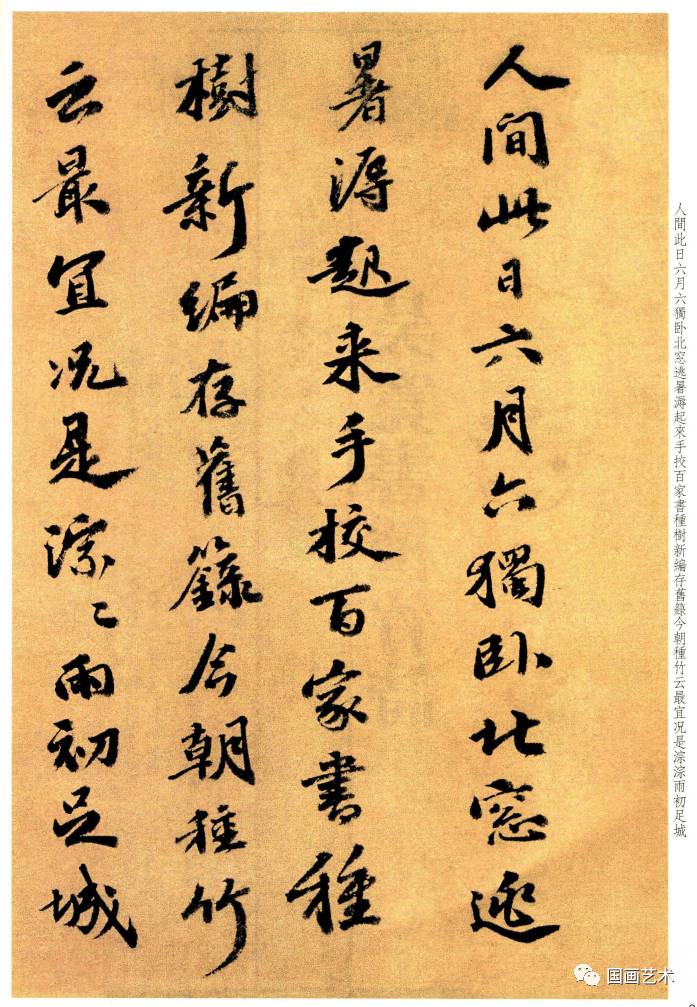 人間此日六月六獨卧北窓逃
暑溽起来手校百家書種
樹新編存舊籙今朝種竹
云最宜况是淙〻雨初足城
人間此日六月六獨卧北窓逃暑溽起來手挍百家書種樹新編存舊籙今朝種竹云最宜况是淙淙雨初足城
国画艺术